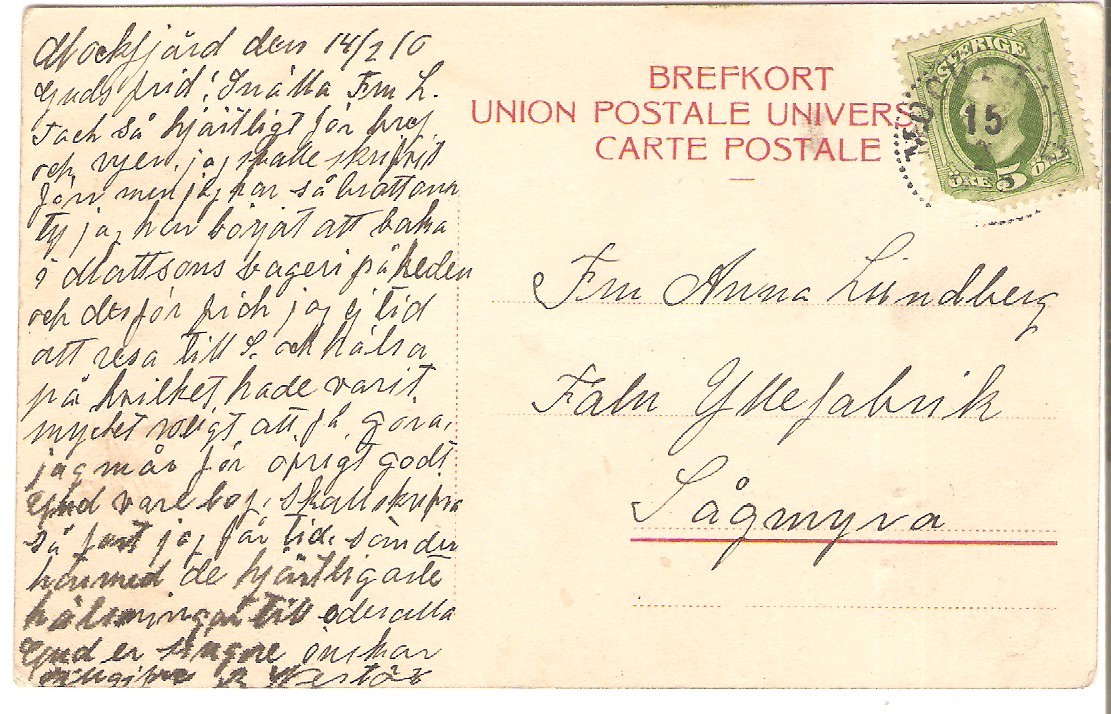 Mockfjärd den 14/2 10
Guds frid! Snälla Fru L.
Tack så hjärtligt för bref
och vyer. jag skulle skrifvit
förr men jag har så brattom
ty jag har börjat att baka
i Mattsons bageri på heden
och derför fick jag ej tid
att resa till S. och hälsa
på hvilket hade varit
mycket roligt att få göra,
jag mår för öfrigt godt
Gud vare lof, skall skrifva
så fort jag får tid, sänder
härmed de hjärtligaste
hälsningar till eder alla
Gud er signe önskar
R Westör
BREFKORT
UNION POSTALE UNIVERS
CARTE POSTALE
SVERIGE
15
2
ÖRE 5 ÖRE
Fru Anna Lundberg
Falu Yllefabrik
Sågmyra